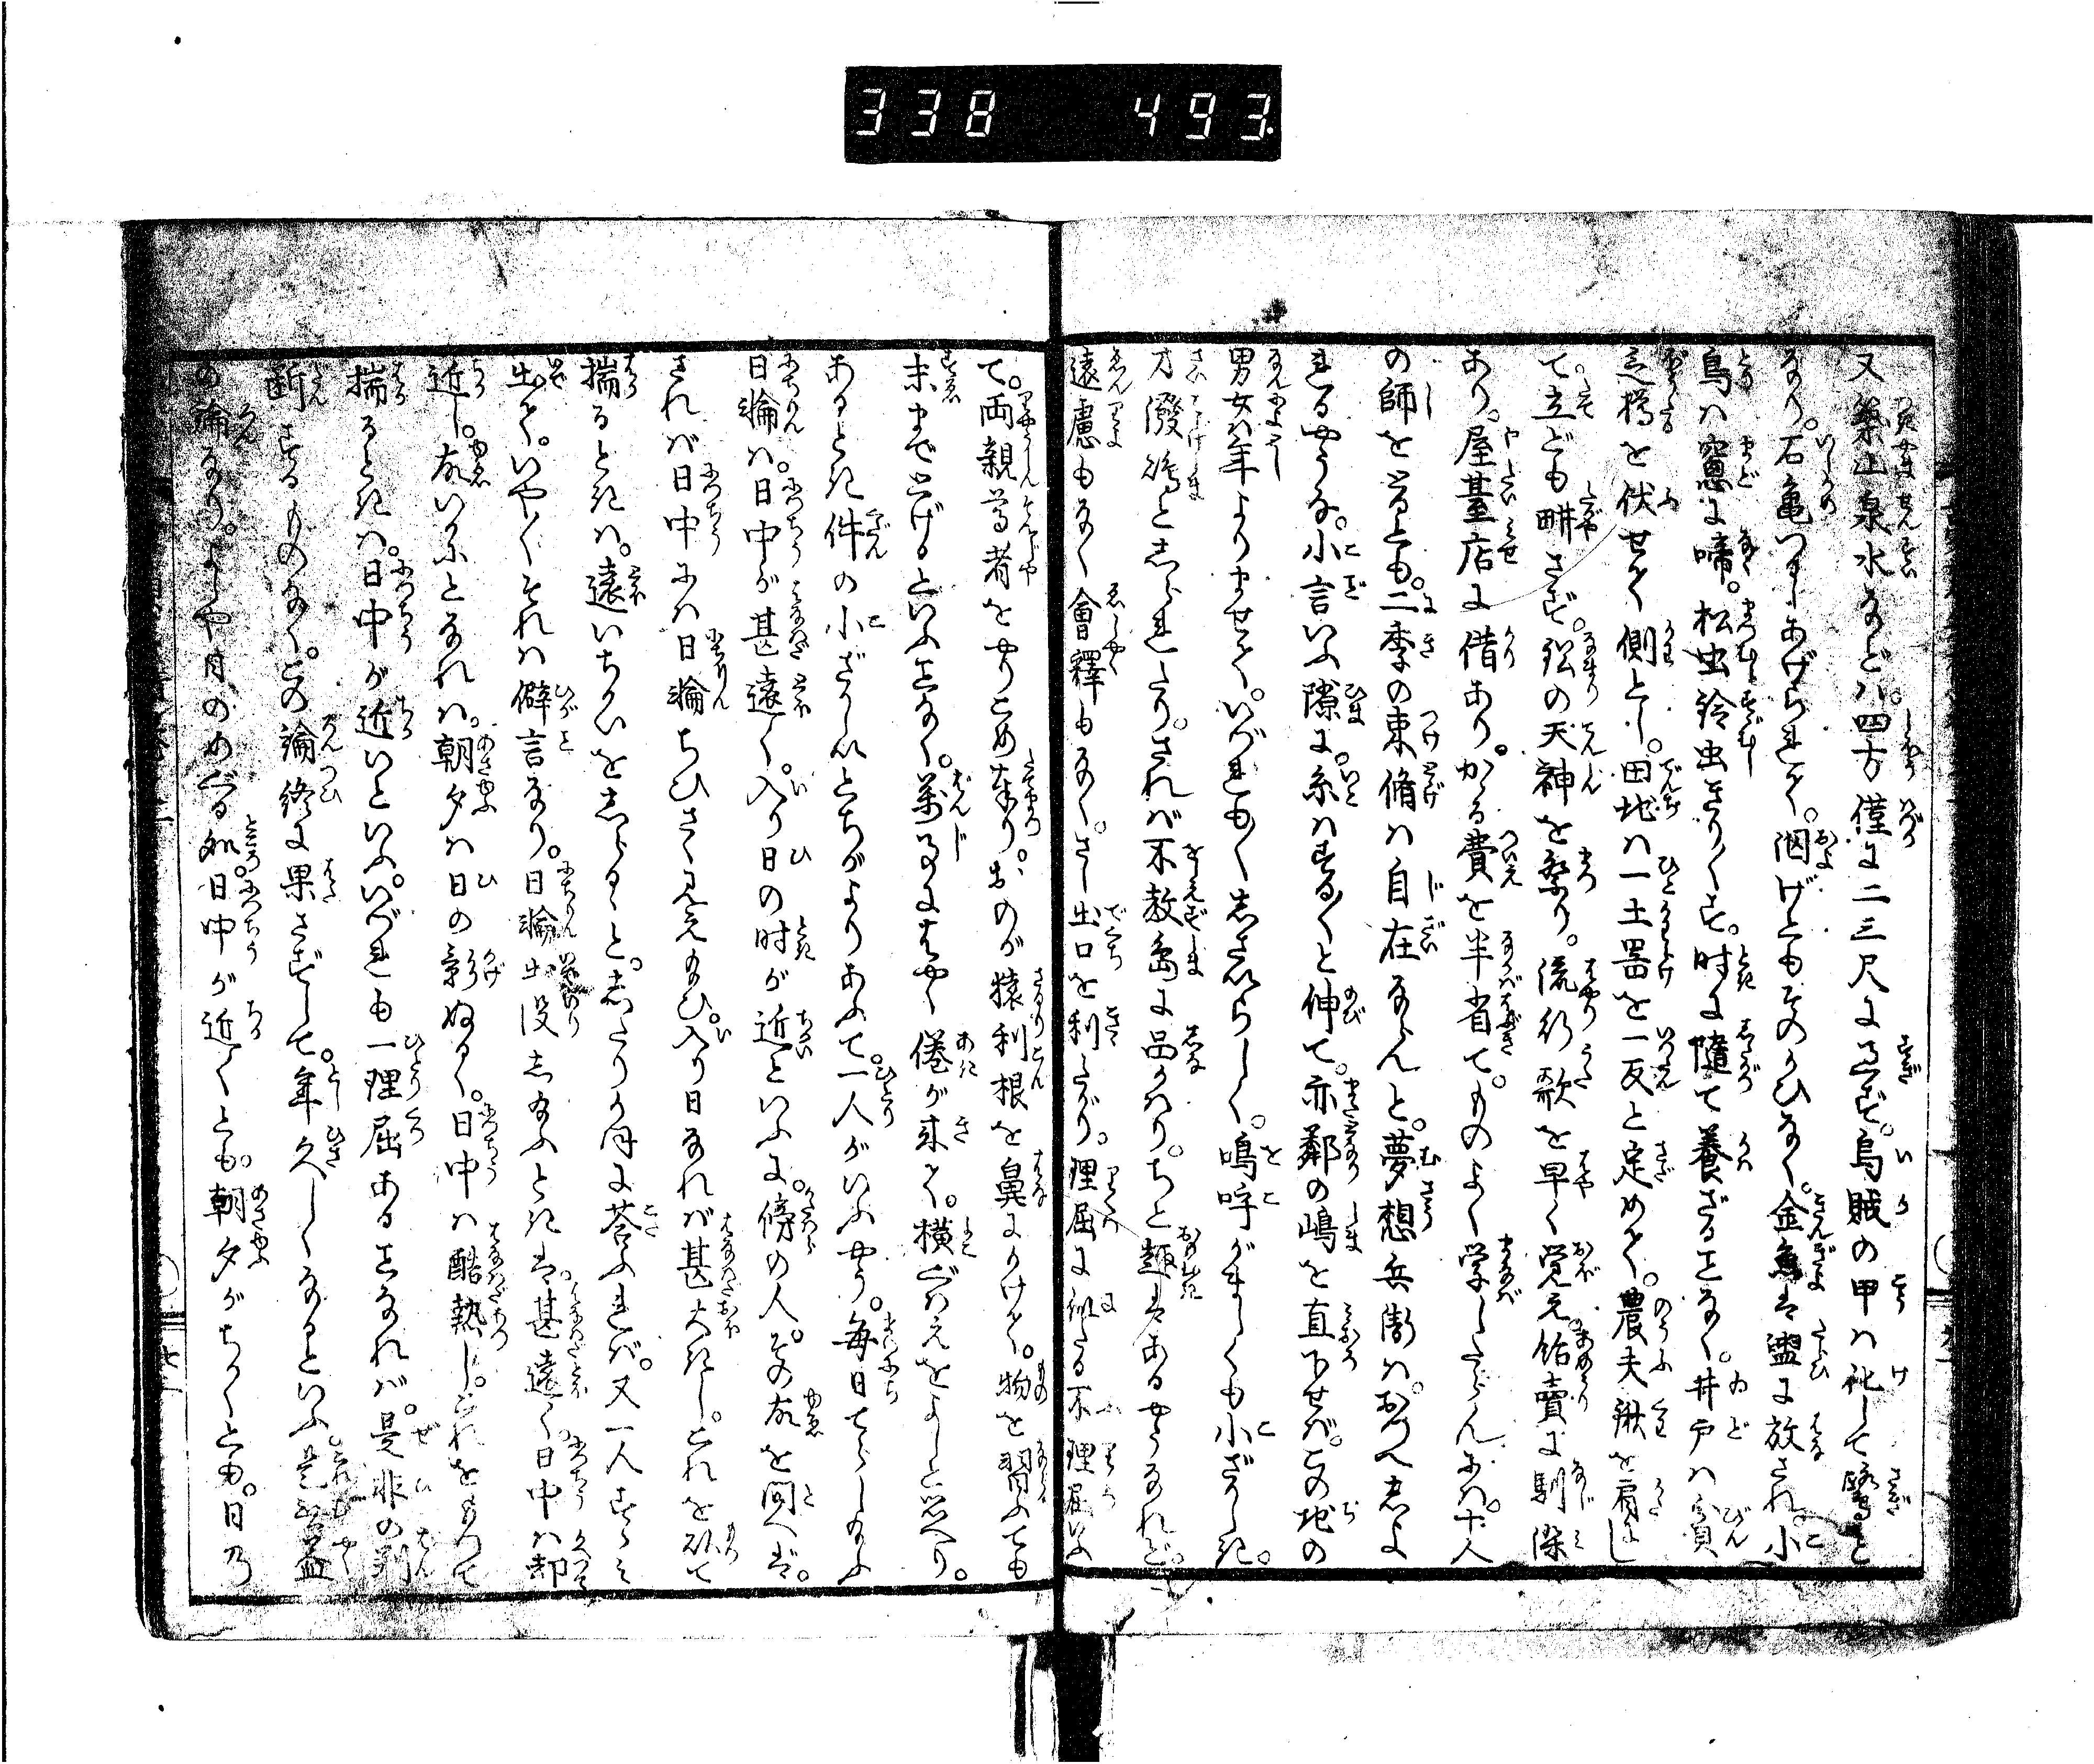 338 493
又築山泉水などハ。四方僅に二三尺に過ず。烏賊の甲ハ化して鷺と
なり。石亀つるしあげられて。泅げどもそのかひなく。金魚は盥に放され。小
鳥ハ窓に啼。松虫鈴虫きり〳〵す。時に随て養ざることなく。井戸ハ貧
乏樽を伏せて側とし。田地ハ一土器を一反と定めて。農夫鍬を肩にし
て立ども畊さず。鉛の天神を祭り。流行歌を早く覚え。飴賣に馴染
あり。屋臺店に借あり。かゝる費を半省て。ものよく学したらんにハ。十人
の師をとるとも。二季の束脩ハ自在ならんと。夢想兵衛ハ。おりへしよ
れるやうな。小言いふ隙に。糸ハする〳〵と伸て。亦鄰の嶋を直下せば。この地の
男女ハ年よりませて。いづれも〳〵しさいらしく。嗚呼がましくも小ざかしき。
才溌嶋としられたり。されば不教嶋に品かハり。ちと趣はあるやうなれど。
遠慮もなく會釋もなく。さし出口を利たがり。理屈に似たる不理屈いふ
て。両親尊者をやりこめたがり。おのが猿利根を鼻にかけて。物を習ふても
末までとげるといふことなく。萬事にはやく倦が来て。横ぐハえをよしと思へり。
あるとき件の小ざかしいとちがよりあふて。一人がいふやう。毎日てらし給ふ
日輪ハ。日中が甚遠く。入り日の时が近いといふに。傍の人。その故を問へば。
されバ日中にハ日輪ちひさく見え給ひ。入り日なれば甚大きし。これを以て
揣るときハ。遠いちかいをしらるゝと。したりかほに荅ふれバ。又一人すゝみ
出て。いや〳〵それハ僻言なり。日輪出没し給ふときは。甚遠く。日中ハ却
近し。故いかにとなれハ。朝夕ハ日の影ぬるく。日中ハ酷熱し。これをもつて
揣るときハ。日中が近いといふ。いづれも一理屈あることなれバ。是非の判
断するものなく。この論終に果さずして。年久しくなるといふ。是無益
の論なり。よしや日のめぐる処。日中が近くとも。朝夕がちかくとも。日乃